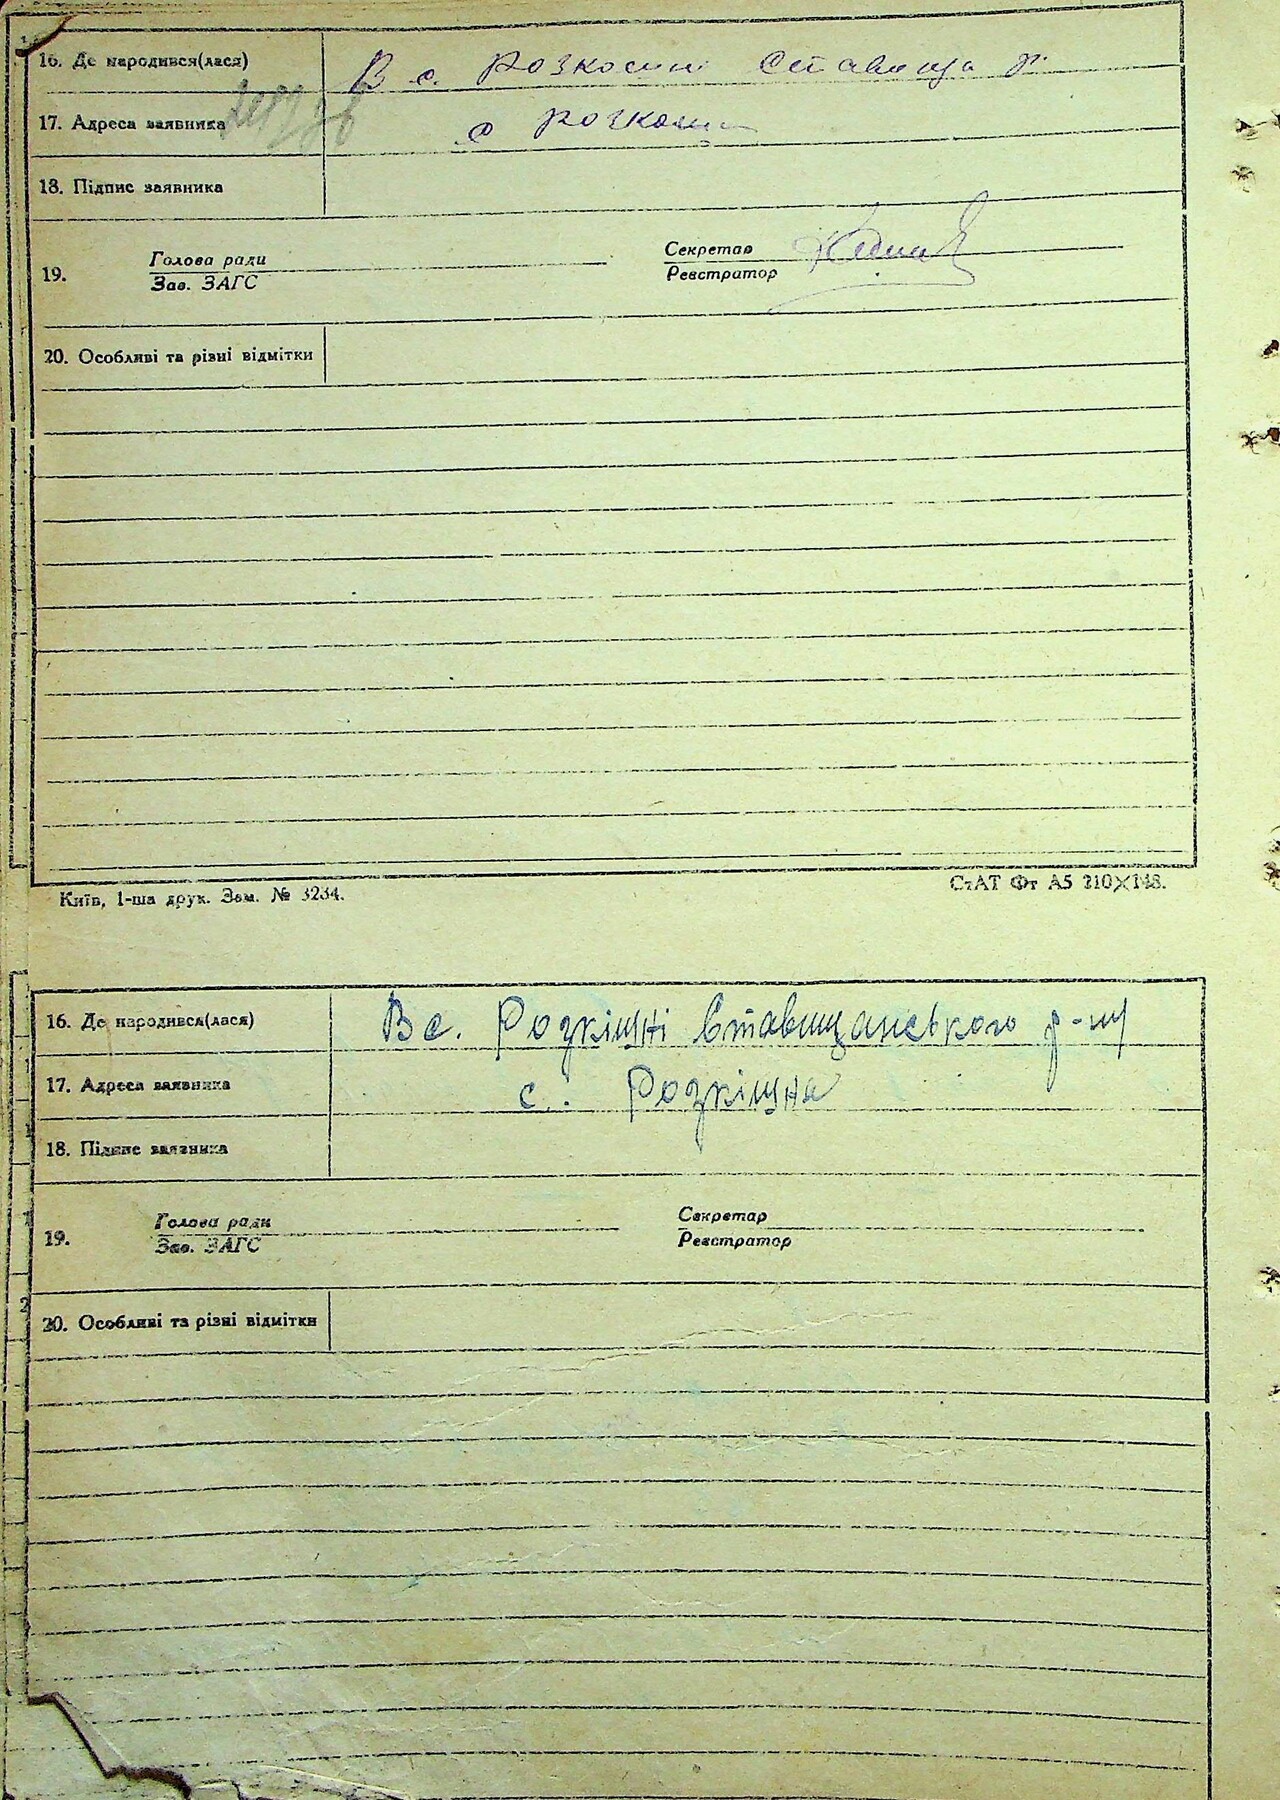 16. Де народився(лася) В с. Розкошні Ставища р.
17. Адреса заявника с
18. Підпис заявника
19. Голова ради Секретар
Зав. ЗАГС Реєстратор
20. Особливі та різні відмітки
Київ, 1-ша друк. Зам. № 3234. СтАТ Фт А5 210×148.
16. Де народився(лася) В с. Розкішні Ставищанського р-ну
17. Адреса заявника с. Розкішна
18. Підпис заявника
19. Голова ради Секретар
Зав. ЗАГС Реєстратор
20. Особливі та різні відмітки